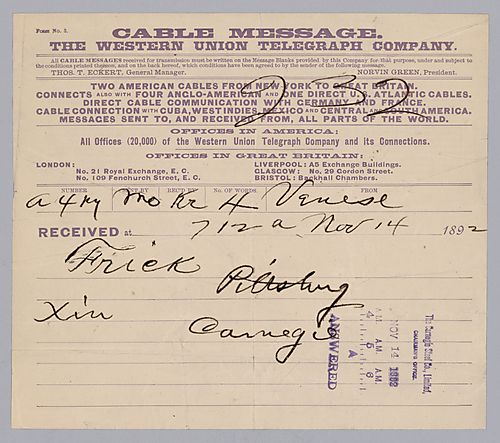 FORM No. 2.
CABLE MESSAGE.
THE WESTERN UNION TELEGRAPH COMPANY.
All CABLE MESSAGES received for transmission must be written on the Message Blanks provided by this Company for that purpose, under and subject to
the conditions printed thereon, and on the back hereof, which conditions have been agreed to by the sender of the following message.
THOS. T. ECKERT, General Manager. NORVIN GREEN, President.
TWO AMERICAN CABLES FROM NEW YORK TO GREAT BRITAIN.
CONNECTS ALSO WITH FOUR ANGLO-AMERICAN AND ONE DIRECT U.S. ATLANTIC CABLES.
DIRECT CABLE COMMUNICATION WITH GERMANY AND FRANCE.
CABLE CONNECTION WITH CUBA, WEST INDIES, MEXICO AND CENTRAL AND SOUTH AMERICA.
MESSAGES SENT TO, AND RECEIVED FROM, ALL PARTS OF THE WORLD.
OFFICES IN AMERICA:
All Offices (20,000) of the Western Union Telegraph Company and its Connections.
OFFICES IN GREAT BRITAIN:
LONDON: LIVERPOOL: A5 Exchange Buildings.
No. 21 Royal Exchange, E. C. GLASCOW: No. 29 Gordon Street.
No. 109 Fenchurch Street, E. C. BRISTOL: Backhall Chambers.
NUMBER SENT BY REC'D BY No. OF WORDS. FROM
4 Venese
RECEIVED at 712 a Nov 14 1892
Frick Pittsburg
Xin
Carnegie
The Carnegie Steel Co., Limited,
CHAIRMAN'S OFFICE.
NOV 14 1892
A.M. A.M.
4 5 6
ANSWERED
A